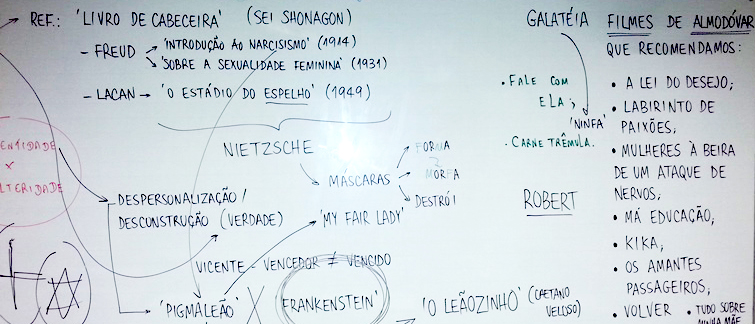 REF.: 'LIVRO DE CABECEIRA' (SEI SHONAGON)
- FREUD → 'INTRODUÇÃO AO NARCISISMO' (1914)
→ 'SOBRE A SEXUALIDADE FEMININA' (1931)
- LACAN → 'O ESTÁDIO DO ESPELHO' (1949)
NIETZSCHE
MÁSCARAS
FORMA
MORFA
DESTRÓI
ENTIDADE
×
LTERIDADE
DESPERSONALIZAÇÃO/
DESCONSTRUÇÃO (VERDADE)
'MY FAIR LADY'
VICENTE - VENCEDOR ≠ VENCIDO
'PIGMALEÃO' X FRANKENSTEIN'
'O LEÃOZINHO' (CAETANO
VELOSO)
GALATÉIA
• FALE COM
ELA;
'NINFA'
• CARNE TRÊMULA.
ROBERT
FILMES DE ALMODÓVAR
QUE RECOMENDAMOS:
• A LEI DO DESEJO;
• LABIRINTO DE
PAIXÕES;
• MULHERES À BEIRA
DE UM ATAQUE DE
NERVOS;
• MÁ EDUCAÇÃO;
• KIKA;
• OS AMANTES
PASSAGEIROS;
• VOLVER • TUDO SOBRE
MINHA MÃE